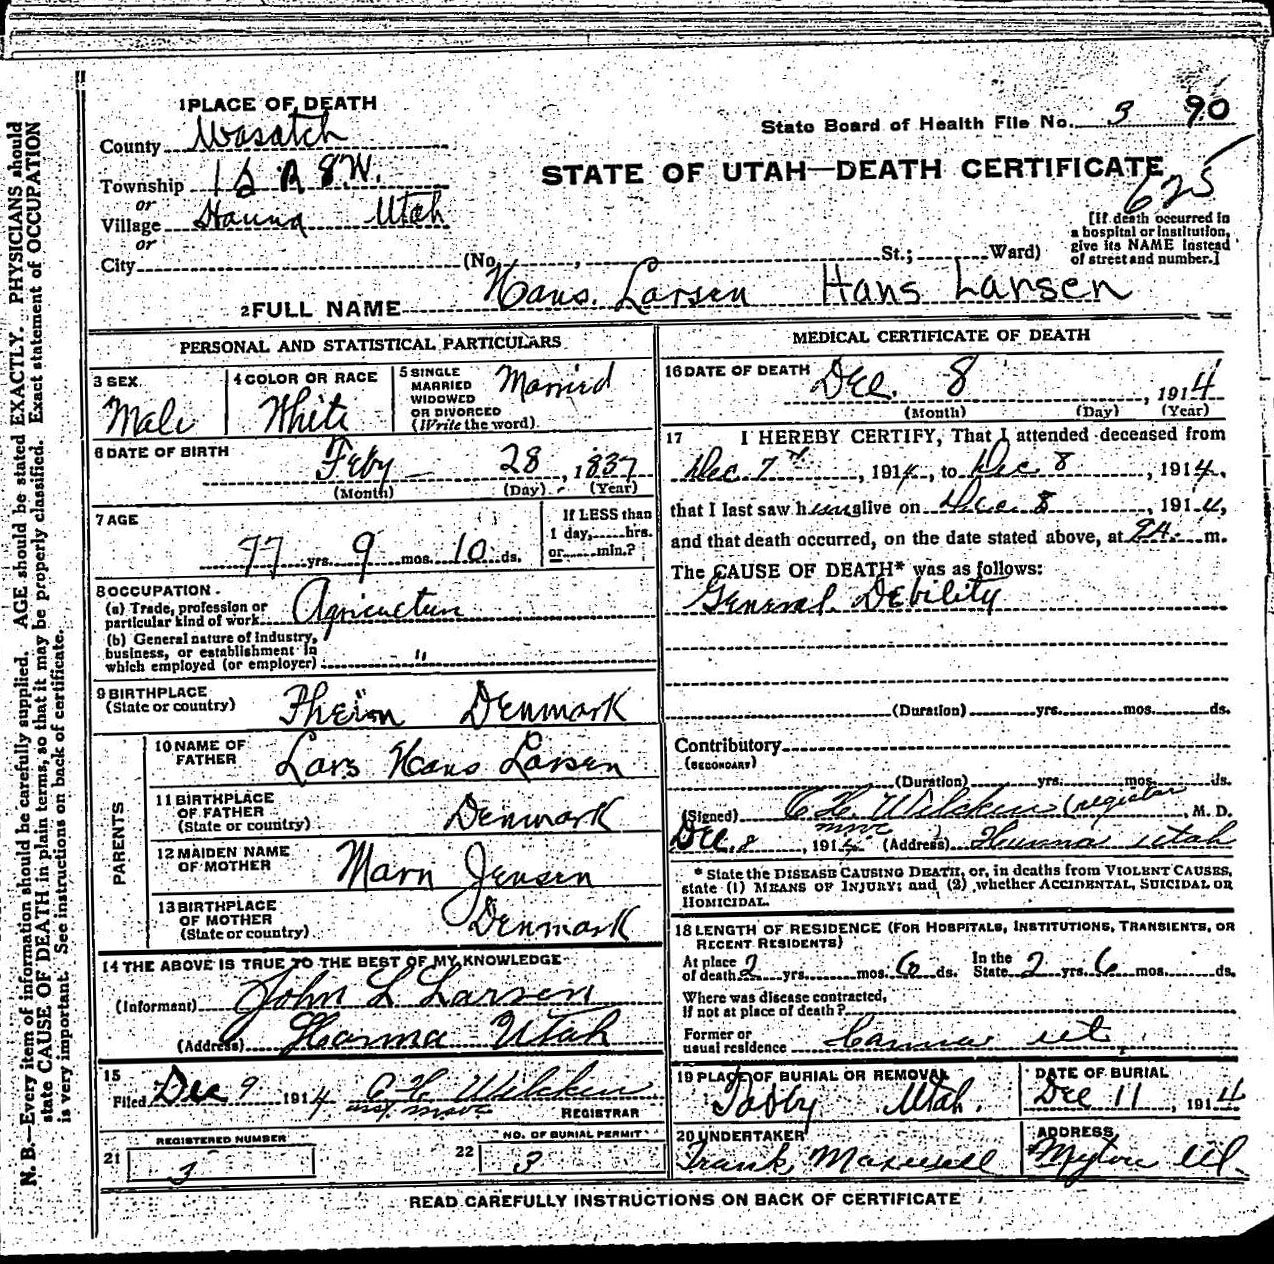 1 PLACE OF DEATH
County Wasatch
State Board of Health File No. 3 90
Township 1 S R 8 W.
STATE OF UTAH—DEATH CERTIFICATE
625
or
Village Hanna Utah
or
City
(No. , St.; Ward)
[If death occurred in
a hospital or institution,
give its NAME instead
of street and number.]
2 FULL NAME Hans. Larsen Hans Larsen
PERSONAL AND STATISTICAL PARTICULARS
3 SEX
Male
4 COLOR OR RACE
White
5 SINGLE
MARRIED
WIDOWED
OR DIVORCED
(Write the word)
Married
6 DATE OF BIRTH
Feby 28, 1837
(Month) (Day) (Year)
7 AGE
77 yrs. 9 mos. 10 ds.
If LESS than
1 day, hrs.
or min.?
8 OCCUPATION
(a) Trade, profession or
particular kind of work
(b) General nature of industry,
business, or establishment in
which employed (or employer) "
9 BIRTHPLACE
(State or country)
Denmark
PARENTS
10 NAME OF
FATHER
Lars Hans Larsen
11 BIRTHPLACE
OF FATHER
(State or country)
Denmark
12 MAIDEN NAME
OF MOTHER
Marn Jensen
13 BIRTHPLACE
OF MOTHER
(State or country)
Denmark
14 THE ABOVE IS TRUE TO THE BEST OF MY KNOWLEDGE
(Informant) John L Larsen
(Address) Hanna Utah
15
Filed Dec 9 1914
REGISTRAR
REGISTERED NUMBER
21 3
NO. OF BURIAL PERMIT
22 3
MEDICAL CERTIFICATE OF DEATH
16 DATE OF DEATH
Dec. 8, 1914
(Month) (Day) (Year)
17 I HEREBY CERTIFY, That I attended deceased from
Dec. 7th, 1914, to Dec 8, 1914,
that I last saw him alive on Dec. 8, 1914,
and that death occurred, on the date stated above, at 9 A. m.
The CAUSE OF DEATH* was as follows:
General Debility
(Duration) yrs. mos. ds.
Contributory
(SECONDARY)
(Duration) yrs. mos. ds.
(Signed) M. D.
Dec. 8, 1914 (Address) Hanna Utah
* State the DISEASE CAUSING DEATH, or, in deaths from VIOLENT CAUSES,
state (1) MEANS OF INJURY; and (2) whether ACCIDENTAL, SUICIDAL OR
HOMICIDAL.
18 LENGTH OF RESIDENCE (FOR HOSPITALS, INSTITUTIONS, TRANSIENTS, OR
RECENT RESIDENTS)
At place
of death 2 yrs. mos. 6 ds. In the
State 2 yrs. 6 mos. ds.
Where was disease contracted,
if not at place of death?
Former or
usual residence
19 PLACE OF BURIAL OR REMOVAL
Tabby Utah.
DATE OF BURIAL
Dec 11, 1914
20 UNDERTAKER
Frank
ADDRESS
Myton Ut.
READ CAREFULLY INSTRUCTIONS ON BACK OF CERTIFICATE
N. B.—Every item of information should be carefully supplied. AGE should be stated EXACTLY. PHYSICIANS should
state CAUSE OF DEATH in plain terms, so that it may be properly classified. Exact statement of OCCUPATION
is very important. See instructions on back of certificate.